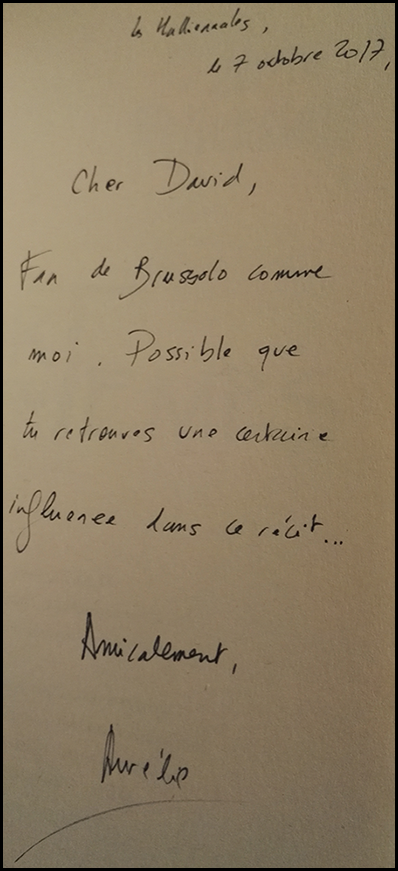 les Halliennales,
le 7 octobre 2017,
Cher David,
Fan de Brussolo comme
moi. Possible que
tu retrouves une certaine
influence dans ce récit...
Amicalement,
Aurélie